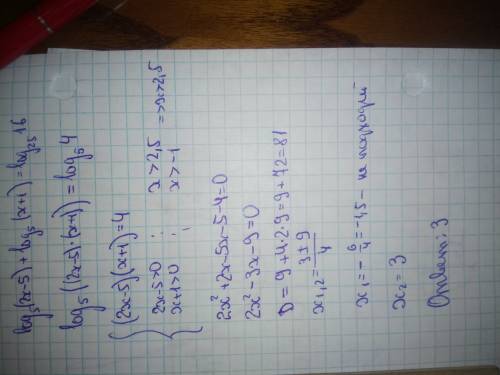 log₅(2x-5)+log₅(x+1)=log₂₅16
log₅((2x-5)·(x+1))=log₅4
{(2x-5)(x+1)=4
2x-5>0 ; x>2,5 =>x>2,5
x+1>0 ; x>-1
2x²+2x-5x-5-4=0
2x²-3x-9=0
D=9+4·2·9=9+72=81
x₁,₂=(3±9)/4
x₁=-6/4=-1,5 - не подходит
x₂=3
Ответ: 3